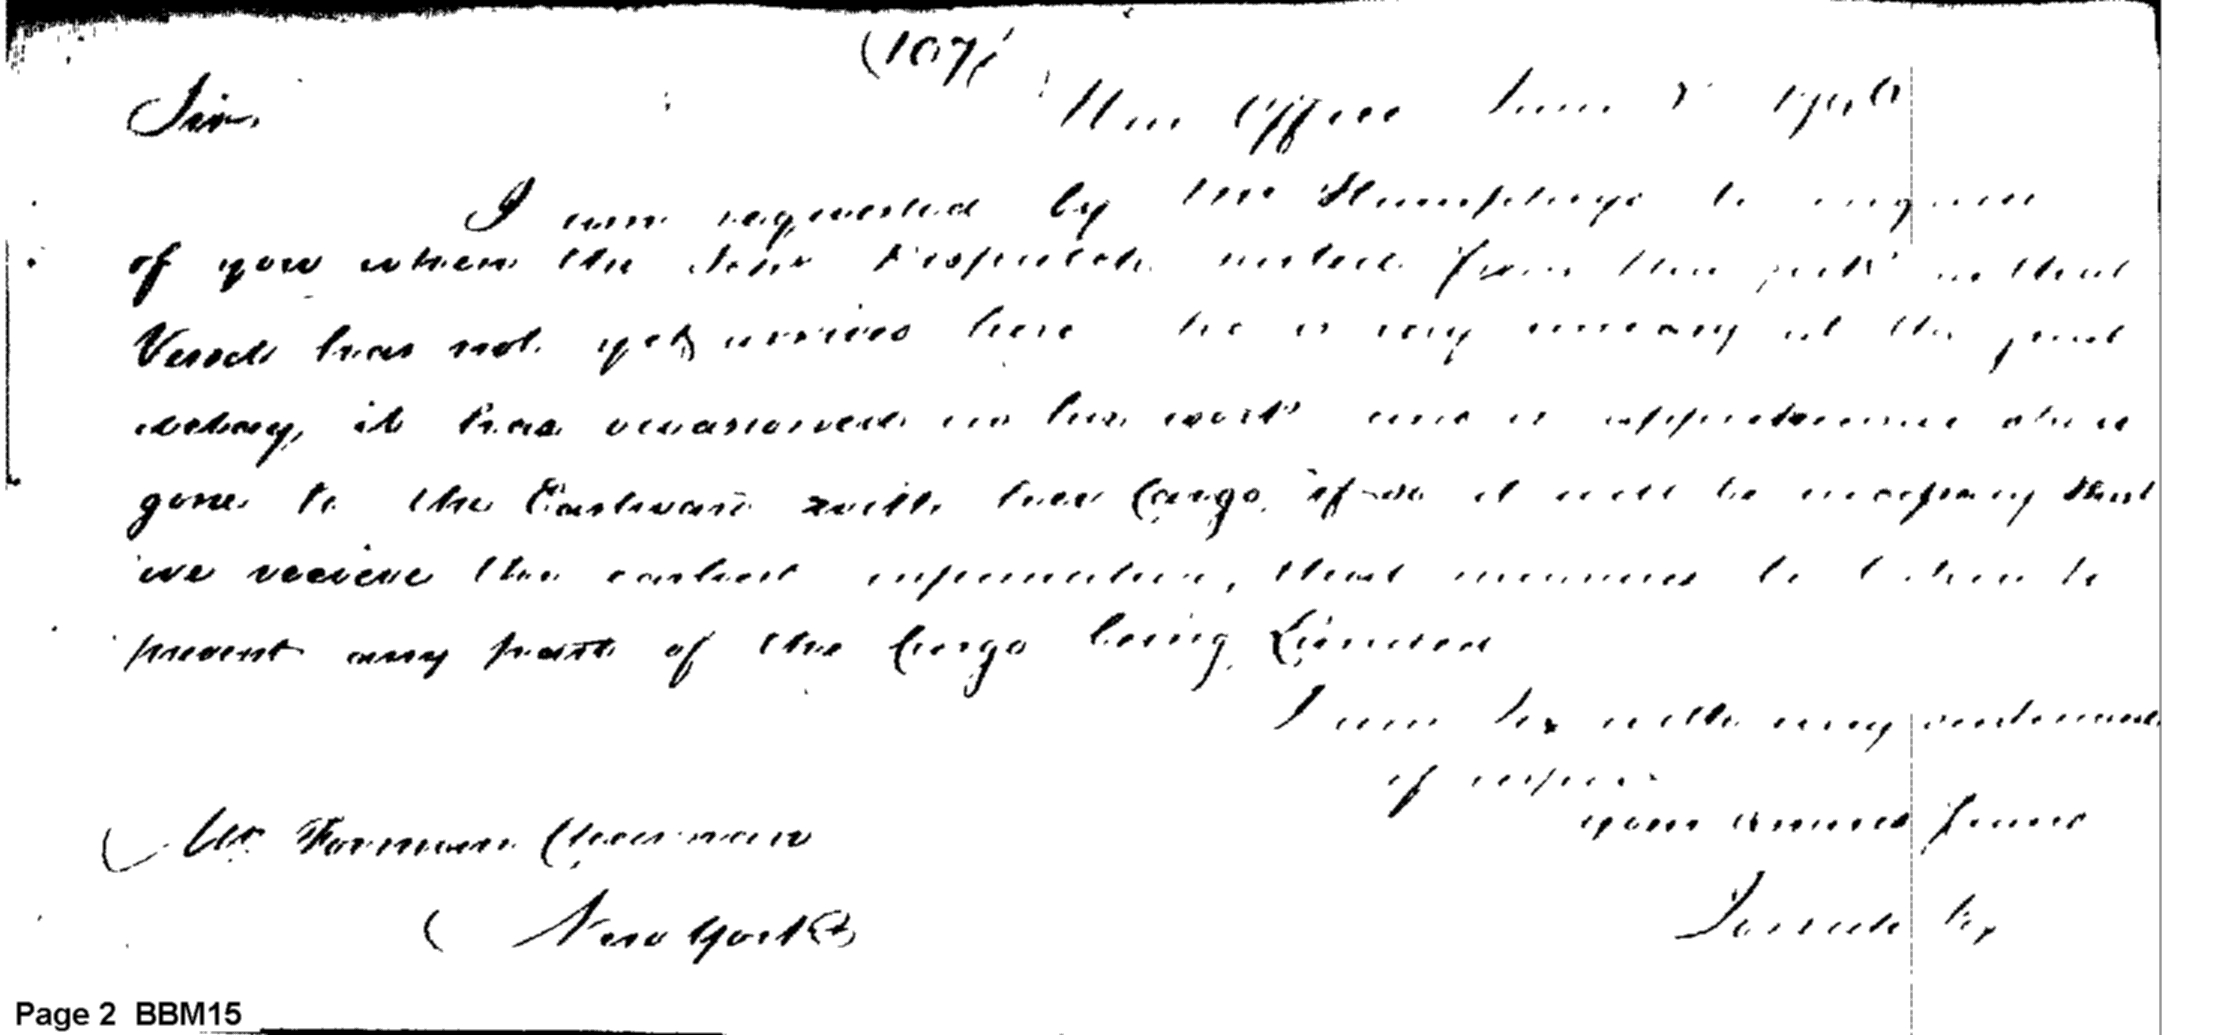 (107)
Sir, War Office June
I am requested by Mr Humphreys to enquire
of you when the Schr Dispatch sailed from
Vessel has not yet arrived here he is very uneasy at the great
delay, it has occasioned in his work and is apprehensive she is
gone to the Eastward with her Cargo, if so it will be necessary that
we recieve the earliest information, that measures be taken to
prevent any part of the Cargo being Landed
I am Sir with my sentiments
of respect
your assured friend
Mr Forman Cheesman
New York
Page 2 BBM15